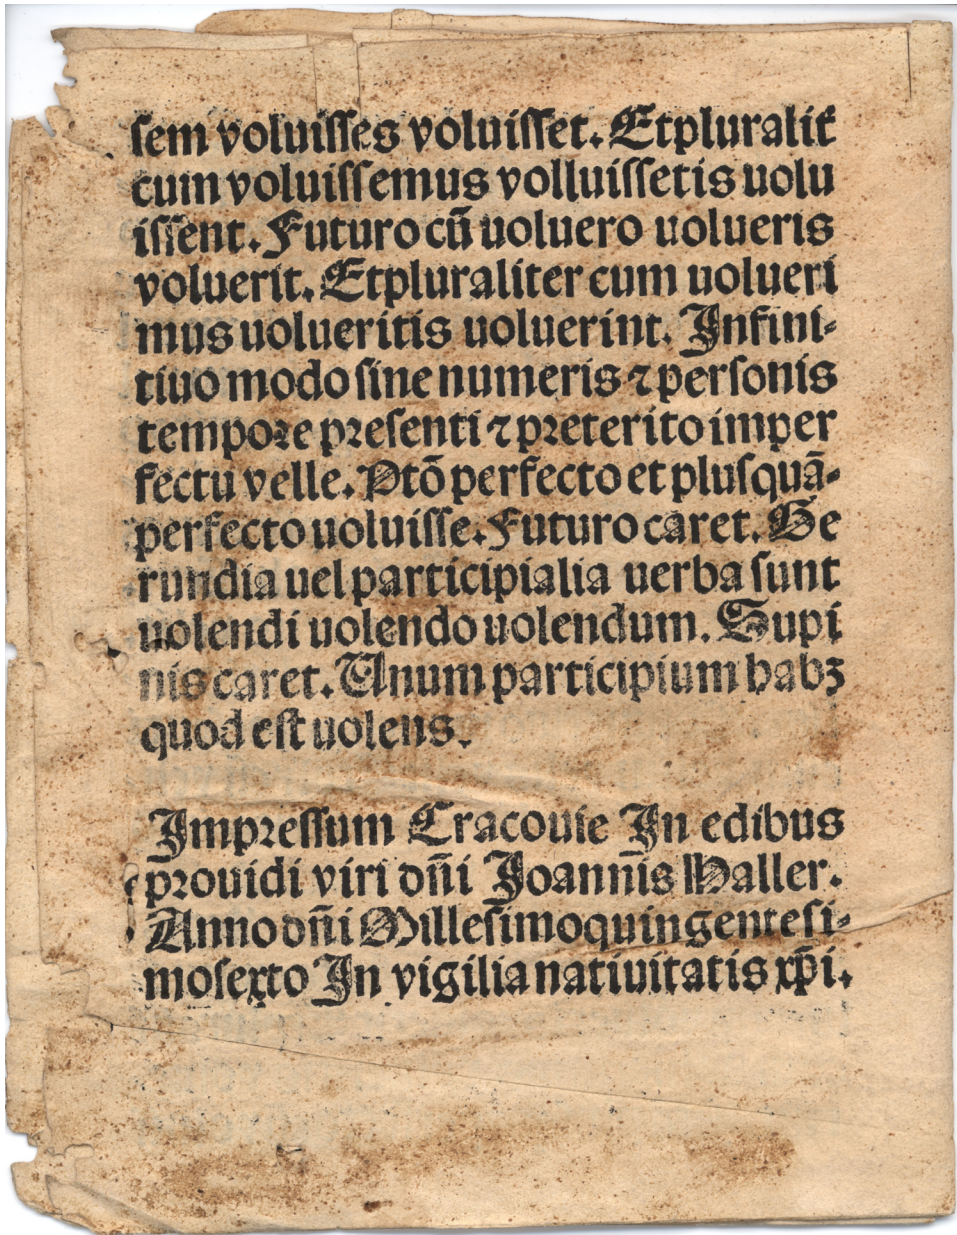 ſem voluiſſes voluiſſet. Etpluralit̃
cum voluiſſemus volluiſſetis uolu
iſſent. Futuro cū uoluero uolueris
voluerit. Etpluraliter cum uolueri
mus uolueritis uoluerint. Infini⸗
tiuo modo ſine numeris ⁊ perſonis
tempoꝛe pꝛeſenti ⁊ pꝛeterito imper
fectu velle. Ptō perfecto et pluſquā⸗
perfecto uoluiſſe. Futuro caret. Ge
rundia uel participialia uerba ſunt
uolendi uolendo uolendum. Supi
nis caret. Unum participium habꝫ
quod eſt uolens.
Impꝛeſſum Cracouie In edibus
pꝛouidi viri dn̄i Joannis Haller.
Anno dn̄i Milleſimoquingenteſi⸗
moſexto In vigilia natiuitatis xp̄i.